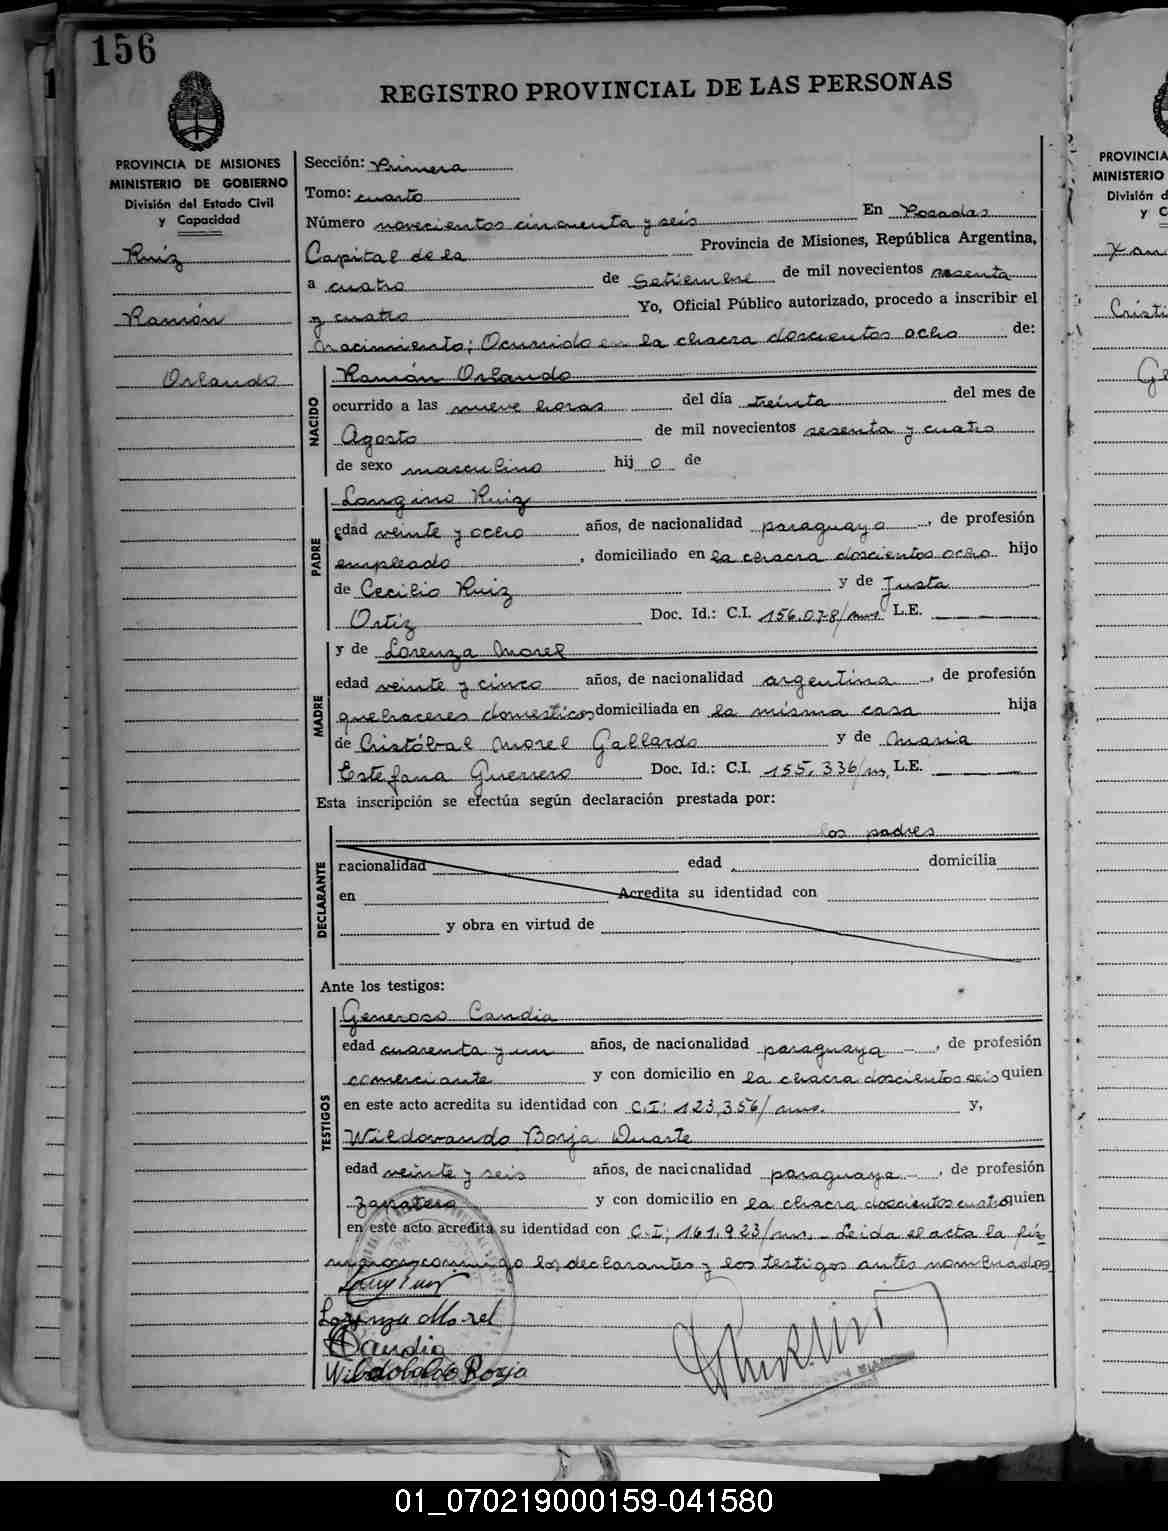 156
REGISTRO PROVINCIAL DE LAS PERSONAS
PROVINCIA DE MISIONES
MINISTERIO DE GOBIERNO
División del Estado Civil
y Capacidad
Ruiz
Ramón
Orlando
Sección: Primera
Tomo: cuarto
Número novecientos cincuenta y seis En Posadas
Capital de la Provincia de Misiones, República Argentina,
a cuatro de Setiembre de mil novecientos sesenta
y cuatro Yo, Oficial Público autorizado, procedo a inscribir el
Nacimiento; Ocurrido en la chacra doscientos ocho de:
NACIDO
Ramón Orlando
ocurrido a las nueve horas del día treinta del mes de
Agosto de mil novecientos sesenta y cuatro
de sexo masculino hij o de
PADRE
Longino Ruiz
edad veinte y ocho años, de nacionalidad paraguaya, de profesión
empleado, domiciliado en la chacra doscientos ocho hijo
de Cecilio Ruiz y de Justa
Ortiz Doc. Id.: C.I. 156.078/mns L.E.
MADRE
y de Lorenza Morel
edad veinte y cinco años, de nacionalidad argentina, de profesión
quehaceres domesticos domiciliada en la misma casa hija
de Cristóbal Morel Gallardo y de Maria
Estefana Guerrero Doc. Id.: C.I. 155.336/m, L.E.
Esta inscripción se efectúa según declaración prestada por:
DECLARANTE
los padres
nacionalidad edad domicilia
en Acredita su identidad con
y obra en virtud de
Ante los testigos:
TESTIGOS
Generoso Candia
edad cuarenta y un años, de nacionalidad paraguaya -, de profesión
comerciante y con domicilio en la chacra doscientos seis quien
en este acto acredita su identidad con C.I: 123,356/mns. y,
Wildovando Borja Duarte
edad veinte y seis años, de nacionalidad paraguaya -, de profesión
zapatero y con domicilio en la chacra doscientos cuatro quien
en este acto acredita su identidad con C.I; 161.923/mns. - Leida el acta la fir-
man conmigo los declarantes y los testigos antes nombrados
Lorenza Morel
G Candia
Wildobaldo Borja
PROVINCIA
MINISTERIO
División d
y C
Cristi
Ge
01_070219000159-041580